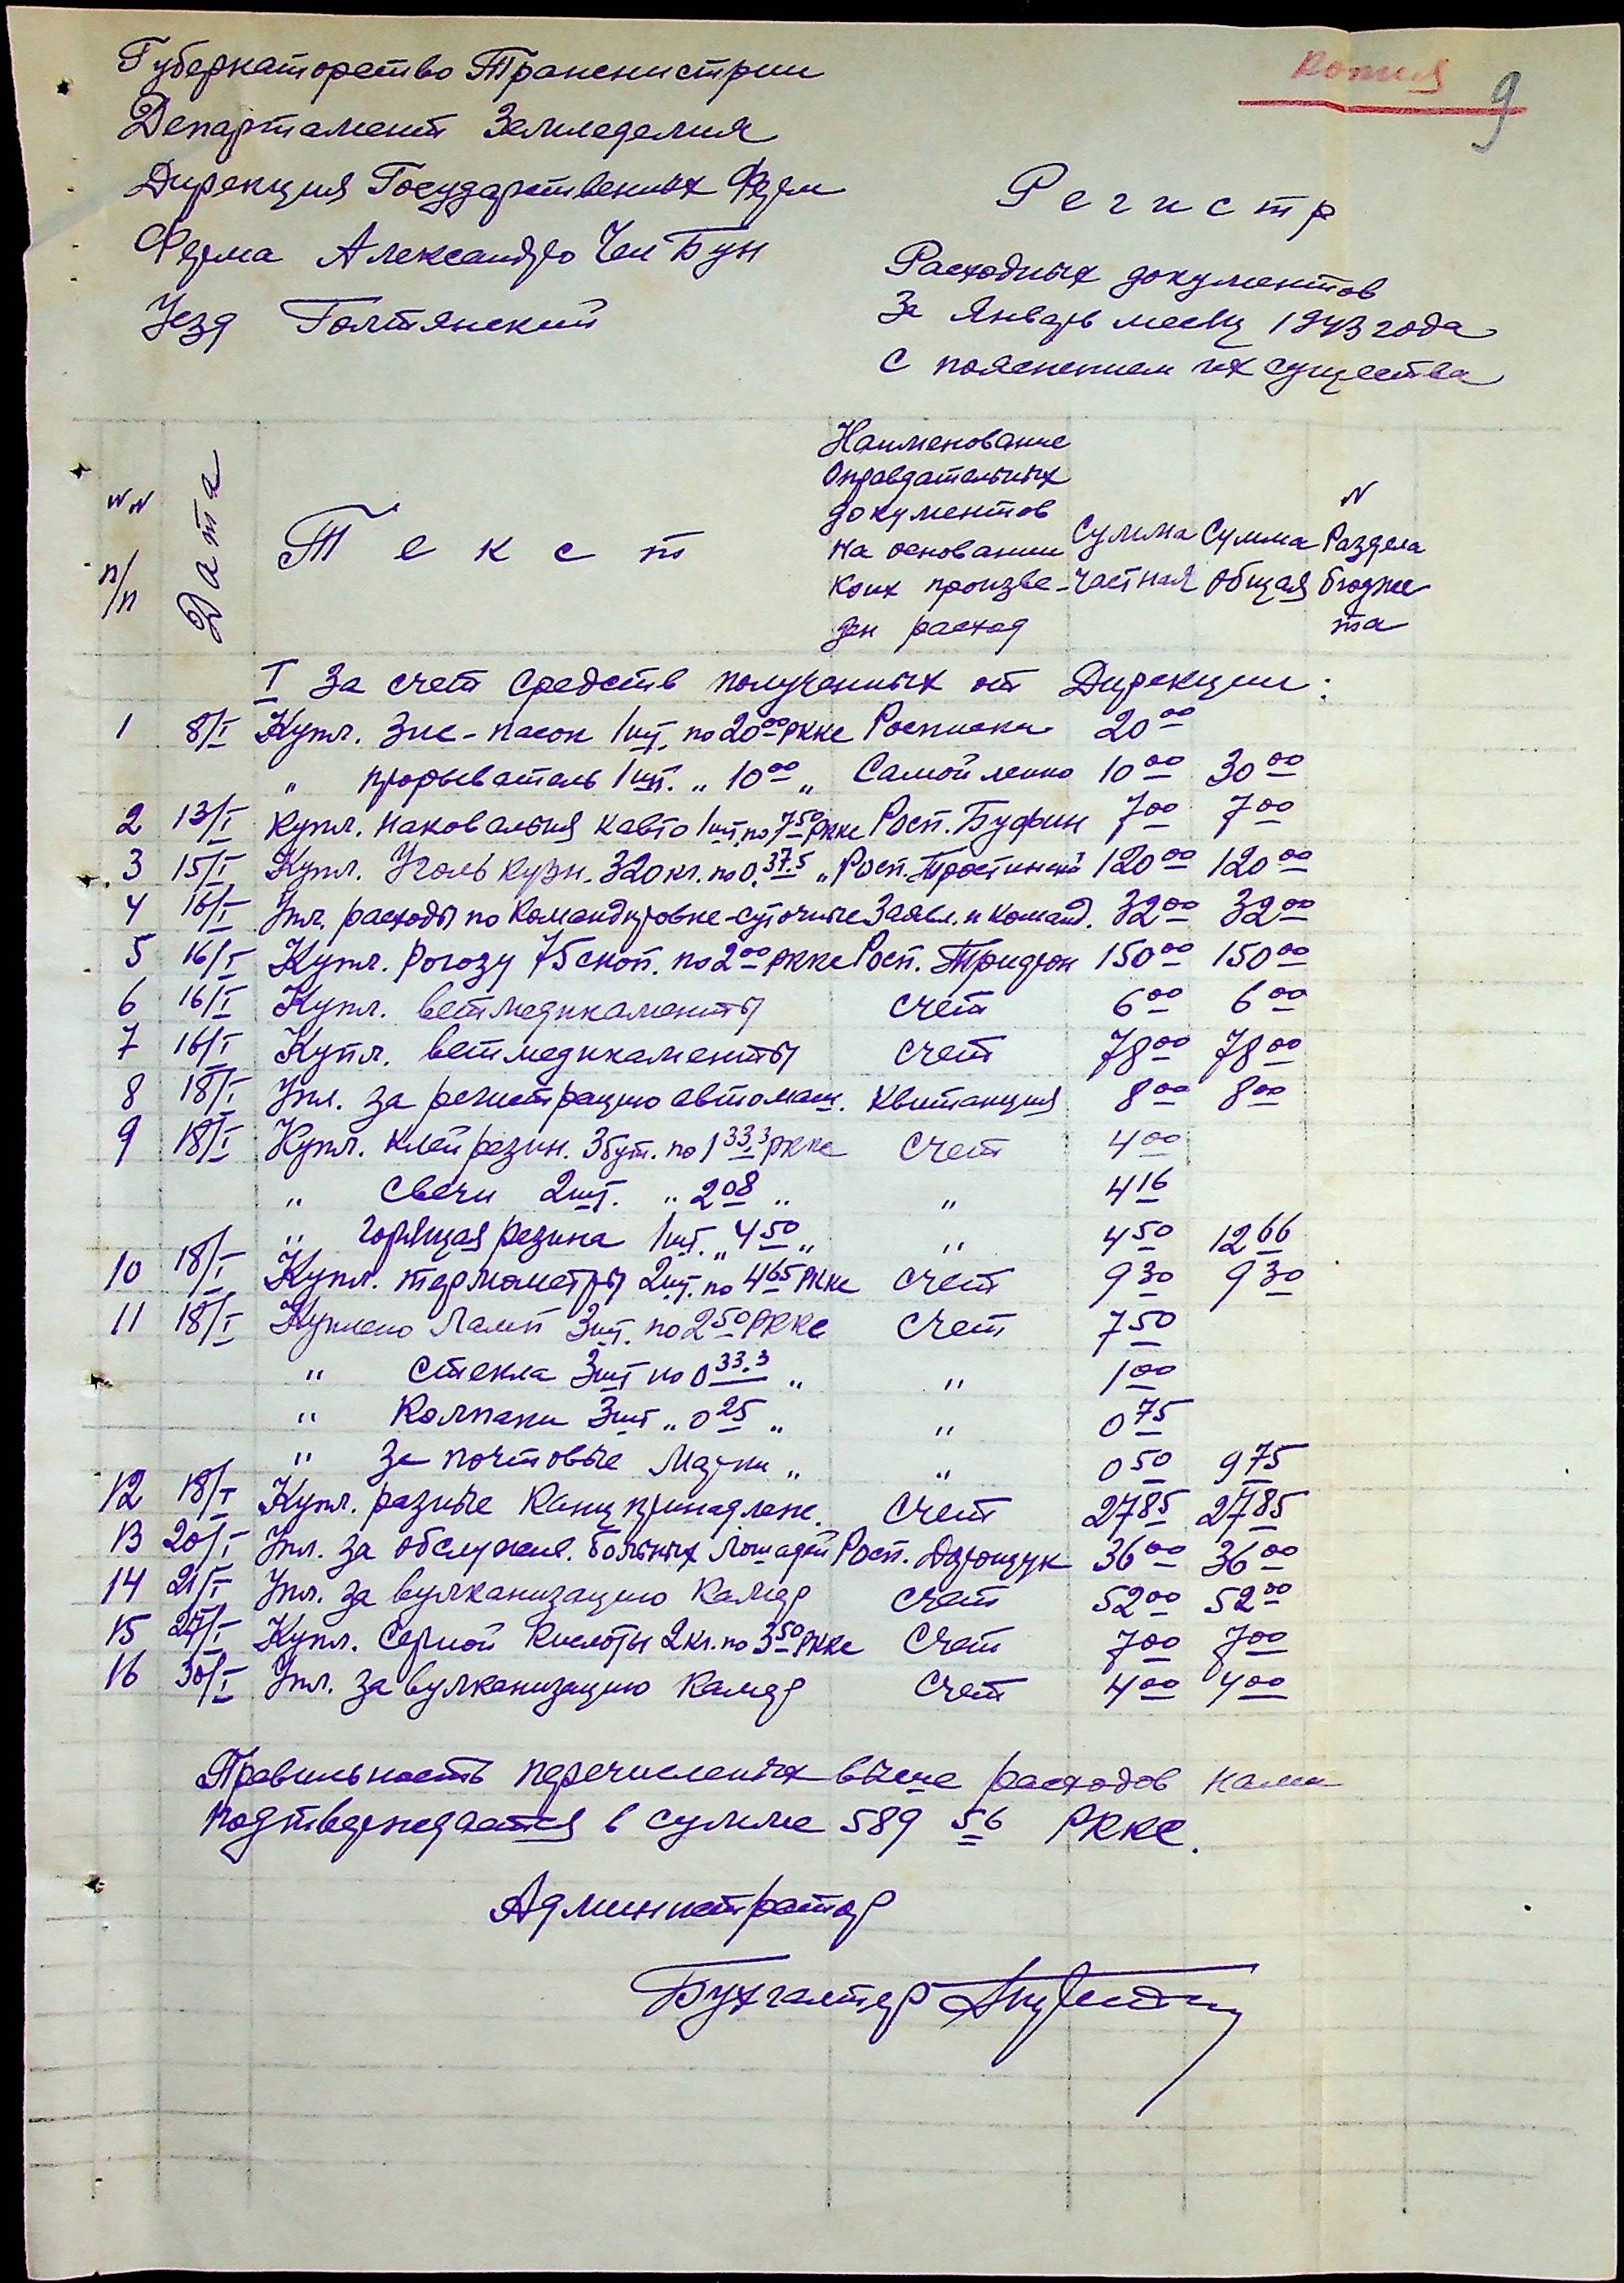 Копия
9
Губернаторство Транснистрии
Департамент Земледелия
Дирекция Государственных Ферм
Ферма Александро Чел Бун
Уезд Голтянский
Регистр
Расходных документов
За Январь месяц 1943 года
С пояснением их существа
NN п/п
Дата
Текст
Наименование
Оправдательных
документов
на основании
коих произве-
ден расход
Сумма
частная
Сумма
общая
N
Раздела
бюдже
та
I За счет средств полученных от Дирекции:
1 8/I Купл. 1 шт. по 20 00 РККС Росписка 20 00
" прорыватель 1 шт. " 10 00 " Самойленко 10 00 30 00
2 13/I Купл. наковальня к авто 1 шт. по 7 50 РККС Росп. Буфин 7 00 7 00
3 15/I Купл. Уголь кузн. 320 кг. по 0,37.5 " Росп. 120 00 120 00
4 16/I Упл. расходы по командировке-суточные Заявл. и команд. 32 00 32 00
5 16/I Купл. Рогозу 75 скоп. по 2 00 РККС Росп. 150 00 150 00
6 16/I Купл. ветмедикаменты Счет 6 00 6 00
7 16/I Купл. ветмедикаменты Счет 78 00 78 00
8 18/I Упл. за регистрацию автомаш. Квитанция 8 00 8 00
9 18/I Купл. клей резин. 3 бут. по 1 33.3 РККС Счет 4 00
" Свечи 2 шт. " 2 08 " " 4 16
" горящая резина 1 шт. " 4 50 " " 4 50 12 66
10 18/I Купл. термометры 2 шт. по 4 65 РККС Счет 9 30 9 30
11 18/I Куплено Ламп 3 шт. по 2 50 РККС Счет 7 50
" Стекла 3 шт по 0 33.3 " " 1 00
" Колпаки 3 шт " 0 25 " " 0 75
" За почтовые Марки " " 0 50 9 75
12 18/I Купл. разные Канц принадлеж. Счет 27 85 27 85
13 20/I Упл. за обслужив. больных лошадей Росп. 36 00 36 00
14 21/I Упл. за вулканизацию Камер Счет 52 00 52 00
15 27/I Купл. Серной Кислоты 2 кг. по 3 50 РККС Счет 7 00 7 00
16 30/I Упл. за вулканизацию Камер Счет 4 00 4 00
Правильность перечисленых выше расходов нами
подтверждается в сумме 589 56 РККС.
Администратор
Бухгалтер